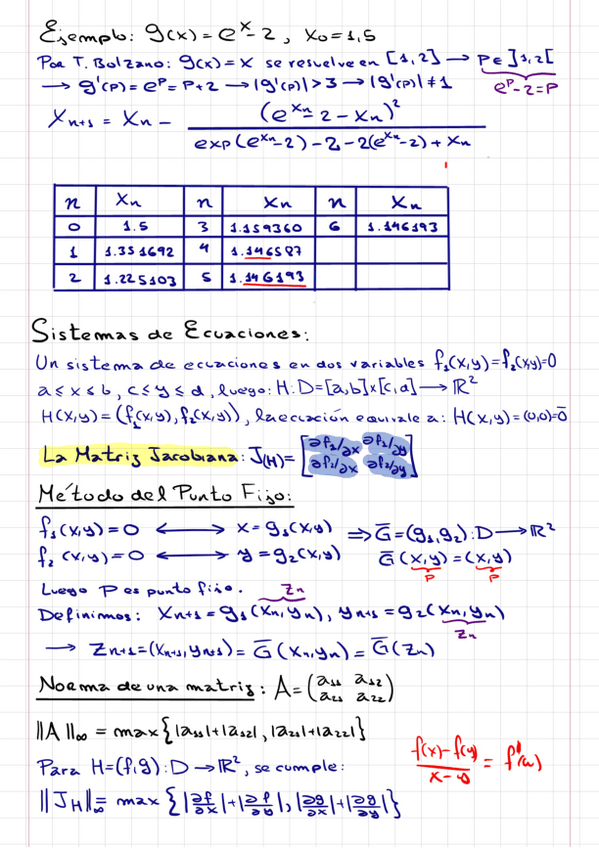 Ejemplo: g(x) = e^x - 2 , x₀ = 1,5
Por T. Bolzano: g(x) = x se resuelve en [1,2] → p ∈ ]1,2[
→ g'(p) = e^p = p+2 → |g'(p)| > 3 → |g'(p)| ≠ 1
e^p - 2 = p
x_{n+1} = x_n - (e^{x_n} - 2 - x_n)² / (exp(e^{x_n} - 2) - 2 - 2(e^{x_n} - 2) + x_n)
n x_n n x_n n x_n
0 1.5 3 1.159360 6 1.146193
1 1.351692 4 1.146587
2 1.225103 5 1.146193
Sistemas de Ecuaciones:
Un sistema de ecuaciones en dos variables f₁(x,y) = f₂(x,y) = 0
a ≤ x ≤ b , c ≤ y ≤ d , luego: H: D = [a,b]x[c,d] → ℝ²
H(x,y) = (f₁(x,y), f₂(x,y)), la ecuación equivale a: H(x,y) = (0,0) = 0̄
La Matriz Jacobiana: J(H) = [∂f₁/∂x ∂f₁/∂y
∂f₂/∂x ∂f₂/∂y]
Método del Punto Fijo:
f₁(x,y) = 0 ⟷ x = g₁(x,y) ⇒ G̅ = (g₁,g₂): D → ℝ²
f₂(x,y) = 0 ⟷ y = g₂(x,y) G̅(x,y) = (x,y)
p p
Luego P es punto fijo.
z_n
Definimos: x_{n+1} = g₁(x_n,y_n), y_{n+1} = g₂(x_n,y_n)
z_n
→ z_{n+1} = (x_{n+1}, y_{n+1}) = G̅(x_n,y_n) = G̅(z_n)
Norma de una matriz: A = (a₁₁ a₁₂
a₂₁ a₂₂)
||A||∞ = max{|a₁₁|+|a₁₂|, |a₂₁|+|a₂₂|}
Para H = (f,g): D → ℝ², se cumple:
f(x) - f(y) / x - y = f'(a)
||J_H||∞ = max{|∂f/∂x| + |∂f/∂y|, |∂g/∂x| + |∂g/∂y|}